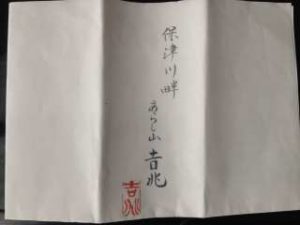 保津川畔
あらし山 吉兆
吉兆